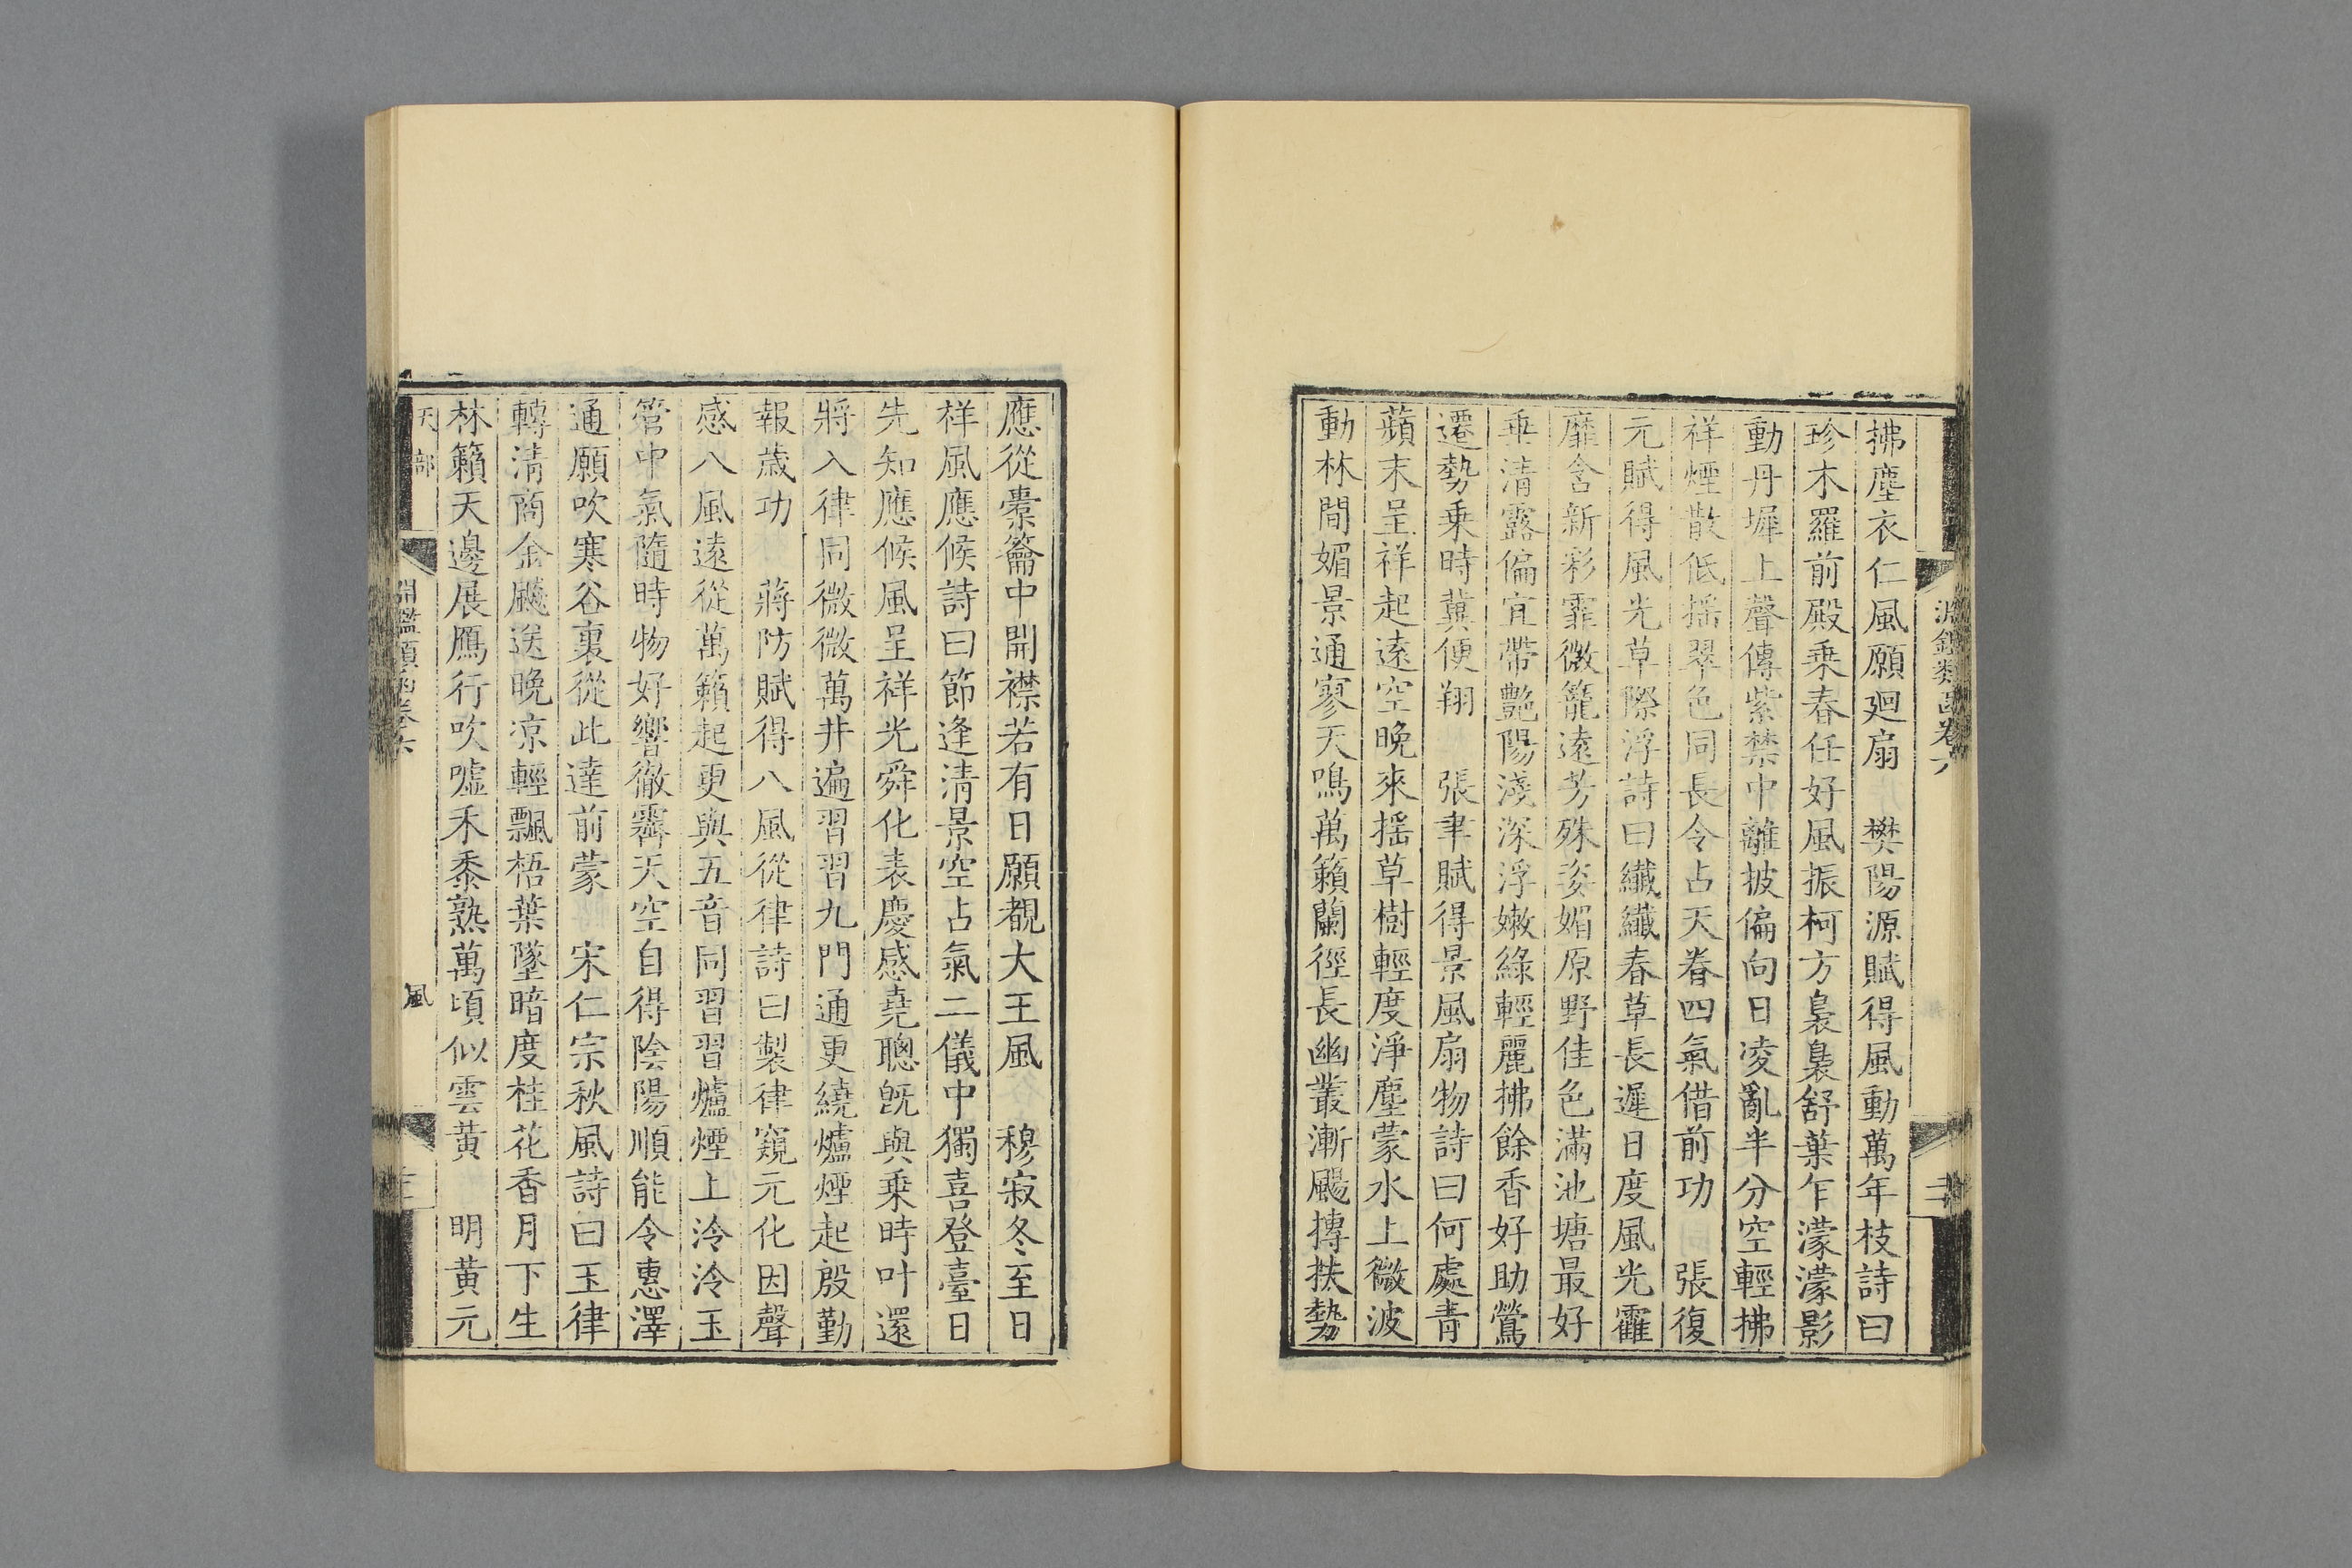 淵鑑類函卷六
拂塵衣仁風願廻扇　樊陽源賦得風動萬年枝詩曰
珍木羅前殿乗春任好風振柯方裊裊舒葉乍濛濛影
動丹墀上聲傳紫禁中離披偏向日凌亂半分空輕拂
祥煙散低揺翠色同長令占天眷四氣借前功　張復
元賦得風光草際浮詩曰纖纖春草長遲日度風光靃
靡含新彩霏微籠遠芳殊姿媚原野佳色滿池塘最好
垂清露偏宜帶艷陽淺深浮嫩綠輕麗拂餘香好助鶯
遷勢乗時冀便翔　張聿賦得景風扇物詩曰何處青
蘋末呈祥起遠空晚來揺草樹輕度淨塵蒙水上微波
動林間媚景通寥天鳴萬籟蘭徑長幽叢漸颺摶扶勢
應從橐籥中開襟若有日願覩大王風　穆寂冬至日
祥風應候詩曰節逢清景空占氣二儀中獨喜登臺日
先知應候風呈祥光舜化表慶感堯聰旣與乗時叶還
將入律同微微萬井遍習習九門通更繞爐煙起殷勤
報歲功　蔣防賦得八風從律詩曰製律窺元化因聲
感八風遠從萬籟起更與五音同習習爐煙上泠泠玉
管中氣隨時物好響徹霽天空自得陰陽順能令惠澤
通願吹寒谷裏從此達前蒙　宋仁宗秋風詩曰玉律
轉清商金飈送晚凉輕飄梧葉墜暗度桂花香月下生
林籟天邊展鴈行吹噓禾黍熟萬頃似雲黃　明黃元
天部　淵鑑類函卷六　風